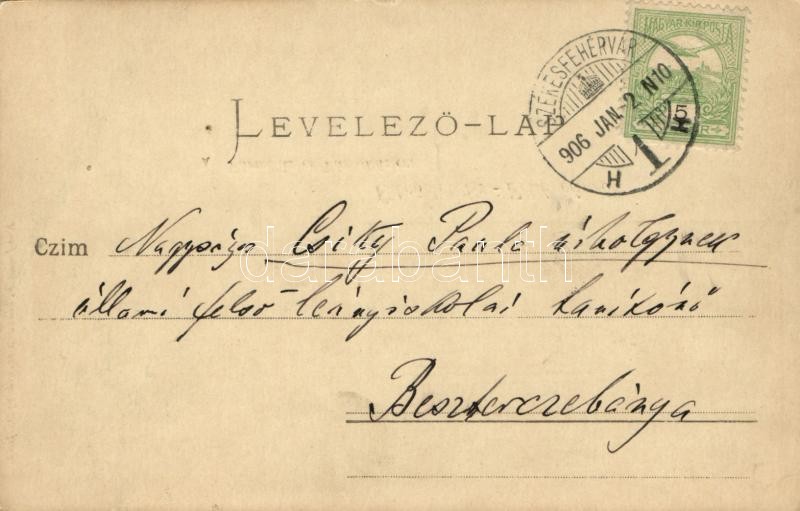 MAGYAR KIR. POSTA
5
SZÉKESFEHÉRVÁR
906 JAN. -2 N10
H
1
LEVELEZŐ-LAP
Czim Nagysága Csiky Paula úrhölgynek
állami felső leányiskolai tanítónő
Beszterczebánya
darabanth